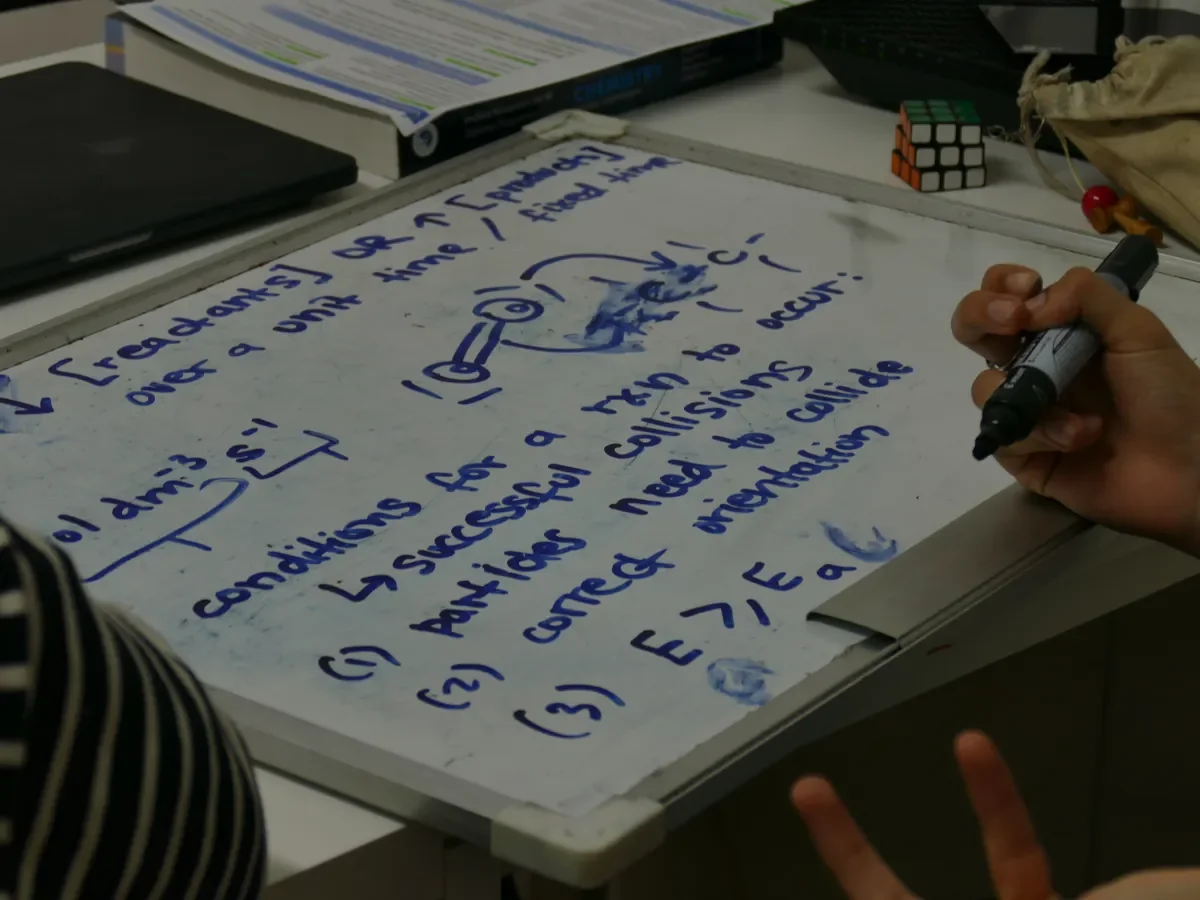 CHEMISTRY
↓ [reactants] OR ↑ [product]
over a unit time / fixed time
C
ol dm⁻³ s⁻¹
conditions for a rxn to occur:
↳ successful collisions
(1) particles need to collide
(2) correct orientation
(3) E ⩾ Ea